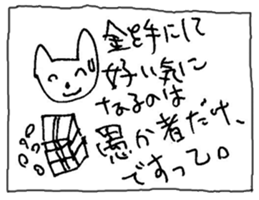 金を手にして
好い気に
なるのは
愚か者だけ、
ですって。